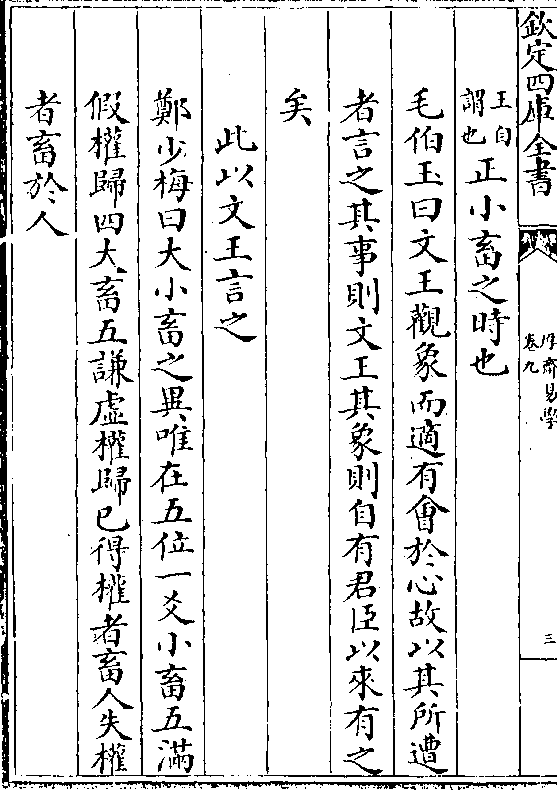 欽定四庫全書
厚齋易學
卷九
三
王自
謂也
正小畜之時也
毛伯玉曰文王觀象而適有會於心故以其所遭
者言之其事則文王其象則自有君臣以來有之
矣
此以文王言之
鄭少梅曰大小畜之異唯在五位一爻小畜五滿
假權歸四大畜五謙虛權歸已得權者畜人失權
者畜於人